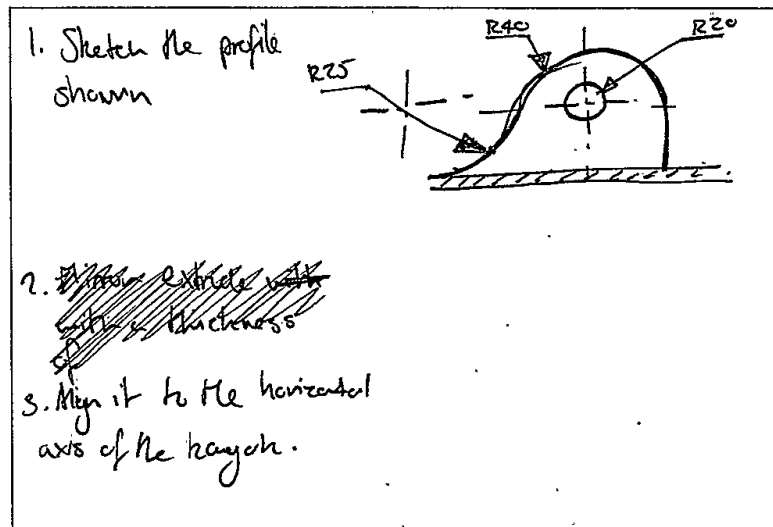 1. Sketch the profile
shown
R25
R40
R20
2. Mirror extrude with
with a thickness
of
3. Align it to the horizontal
axis of the kayak.